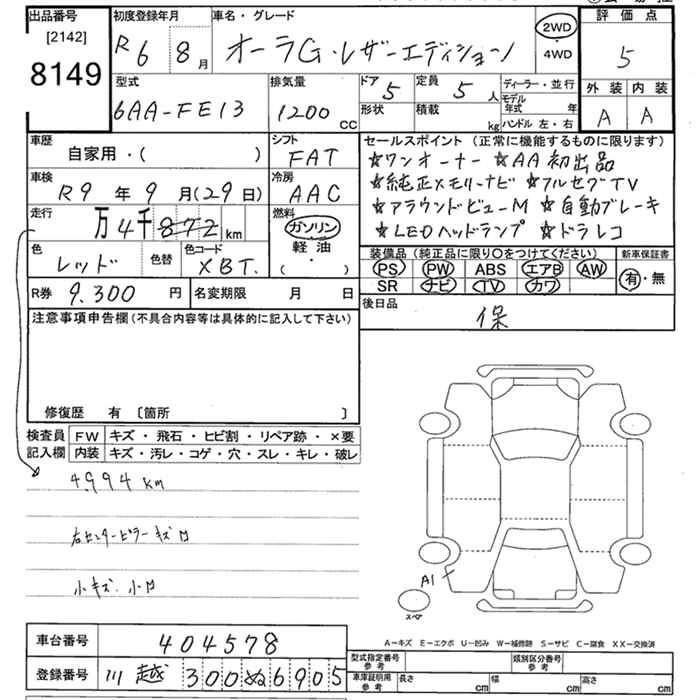 出品番号 [2142] 8149
初度登録年月 R6 8月
車名・グレード オーラG・レザーエディション
2WD・4WD
評価点 5
外装 A 内装 A
型式 6AA-FE13
排気量 1200 CC
ドア 5 定員 5人
形状 積載 kg
ディーラー・並行
モデル年式 年
ハンドル 左・右
車歴 自家用・( )
シフト FAT
車検 R9年9月(29日)
冷房 AAC
走行 万4千872km
燃料 ガソリン 軽油・( )
色 レッド 色替 色コード XBT.
R券 9.300円
名変期限 月 日
セールスポイント(正常に機能するものに限ります)
☆ワンオーナー ☆AA初出品
☆純正メモリーナビ ☆フルセグTV
☆アラウンドビューM ☆自動ブレーキ
☆LEDヘッドランプ ☆ドラレコ
装備品(純正品に限り○をつけてください)
PS PW ABS エアB AW
SR ナビ TV カワ
新車保証書 有・無
後日品 保
注意事項申告欄(不具合内容等は具体的に記入して下さい)
修復歴 有 [箇所 ]
検査員記入欄
FW キズ・飛石・ヒビ割・リペア跡・×要
内装 キズ・汚レ・コゲ・穴・スレ・キレ・破レ
4,994km
右センターピラーキズ凹
小キズ.小凹
A1
スペア
A-キズ E-エクボ U-凹み W-補修跡 S-サビ C-腐食 XX-交換済
車台番号 404578
登録番号 川越 300 ぬ 6905
型式指定番号 参考
類別区分番号 参考
車庫証明用 参考 長さ cm 幅 cm 高さ cm